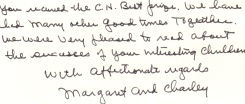 you received the C.N. Best prize. We have
had many other good times together.
We were very pleased to read about
the successes of your interesting children
With affectionate regards
Margaret and Charley